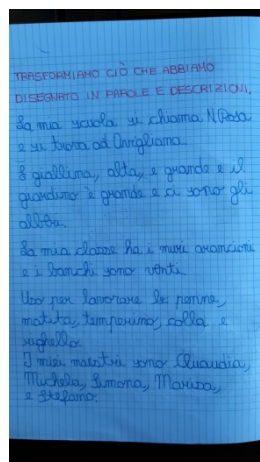 TRASFORMIAMO CIÒ CHE ABBIAMO
DISEGNATO IN PAROLE E DESCRIZIONI.
La mia scuola si chiama N. Rosa
e si trova ad Avigliana.
È giallina, alta, e grande e il
giardino è grande e ci sono gli
alberi.
La mia classe ha i muri arancioni
e i banchi sono venti.
Uso per lavorare le penne,
matita, temperino, colla e
righello.
I miei maestri sono Claudia,
Michela, Simona, Marisa,
e Stefano.